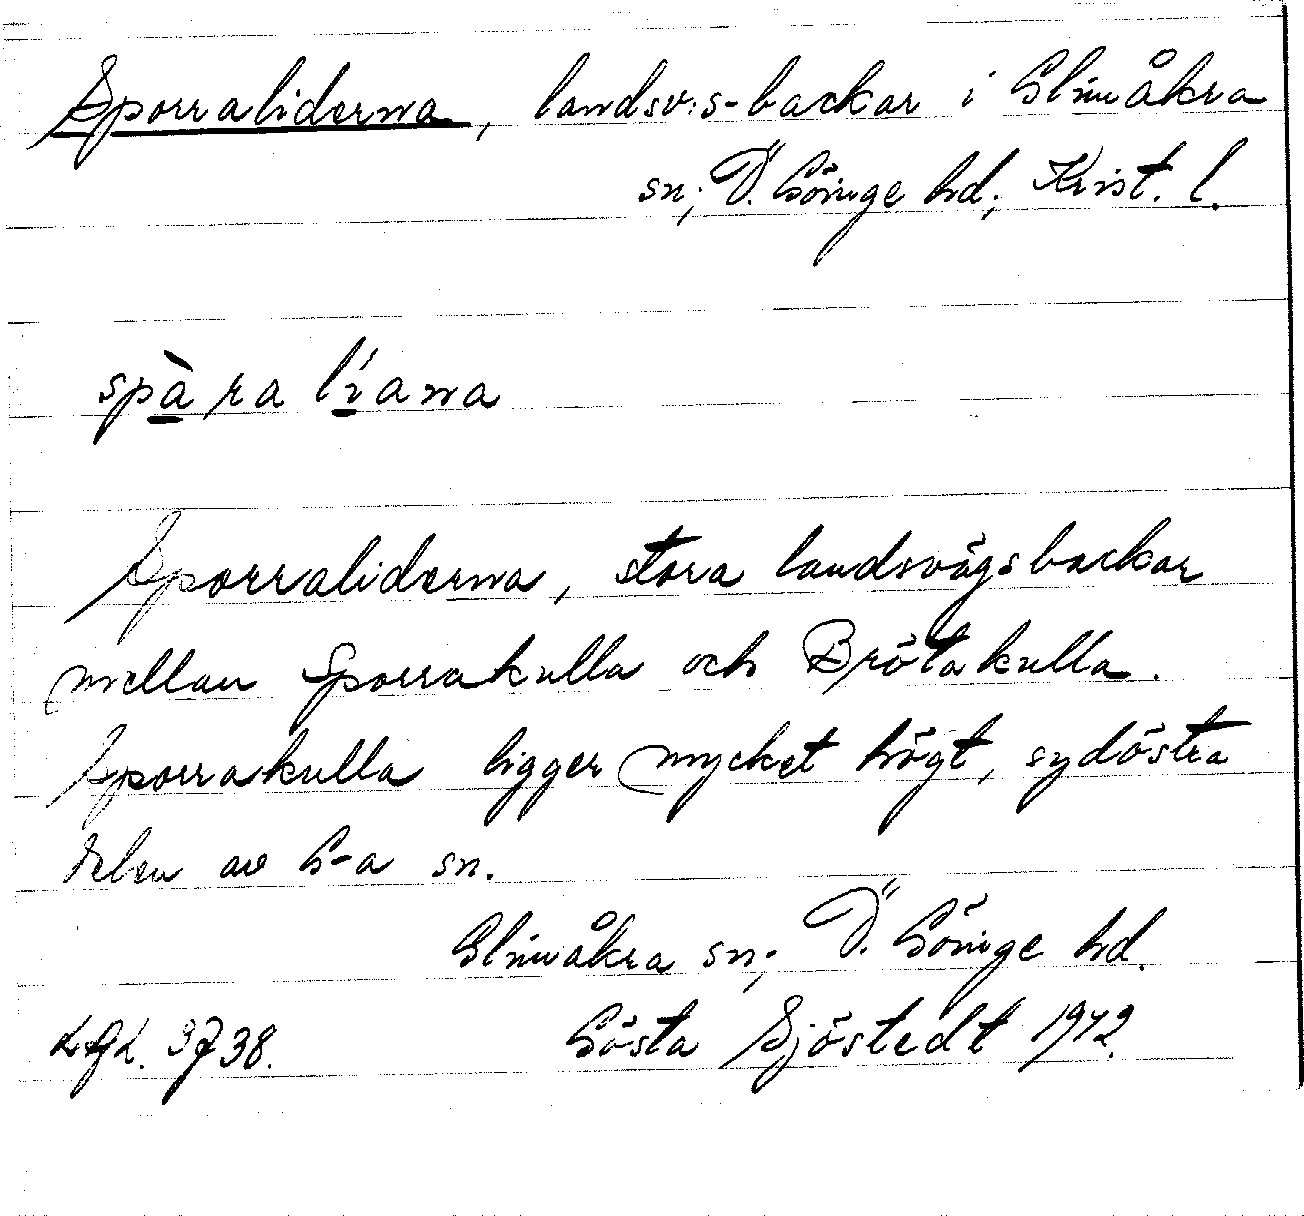 Sporraliderna, landsv:s-backar i Glimåkra
sn; Ö. Göinge hd; Krist. l.
spàra líana
Sporraliderna, stora landsvägsbackar
mellan Sporrakulla och Brötakulla.
Sporrakulla ligger mycket högt, sydöstra
delen av G-a sn.
Glimåkra sn; Ö. Göinge hd.
LGL. 3738. Gösta Sjöstedt 1942.